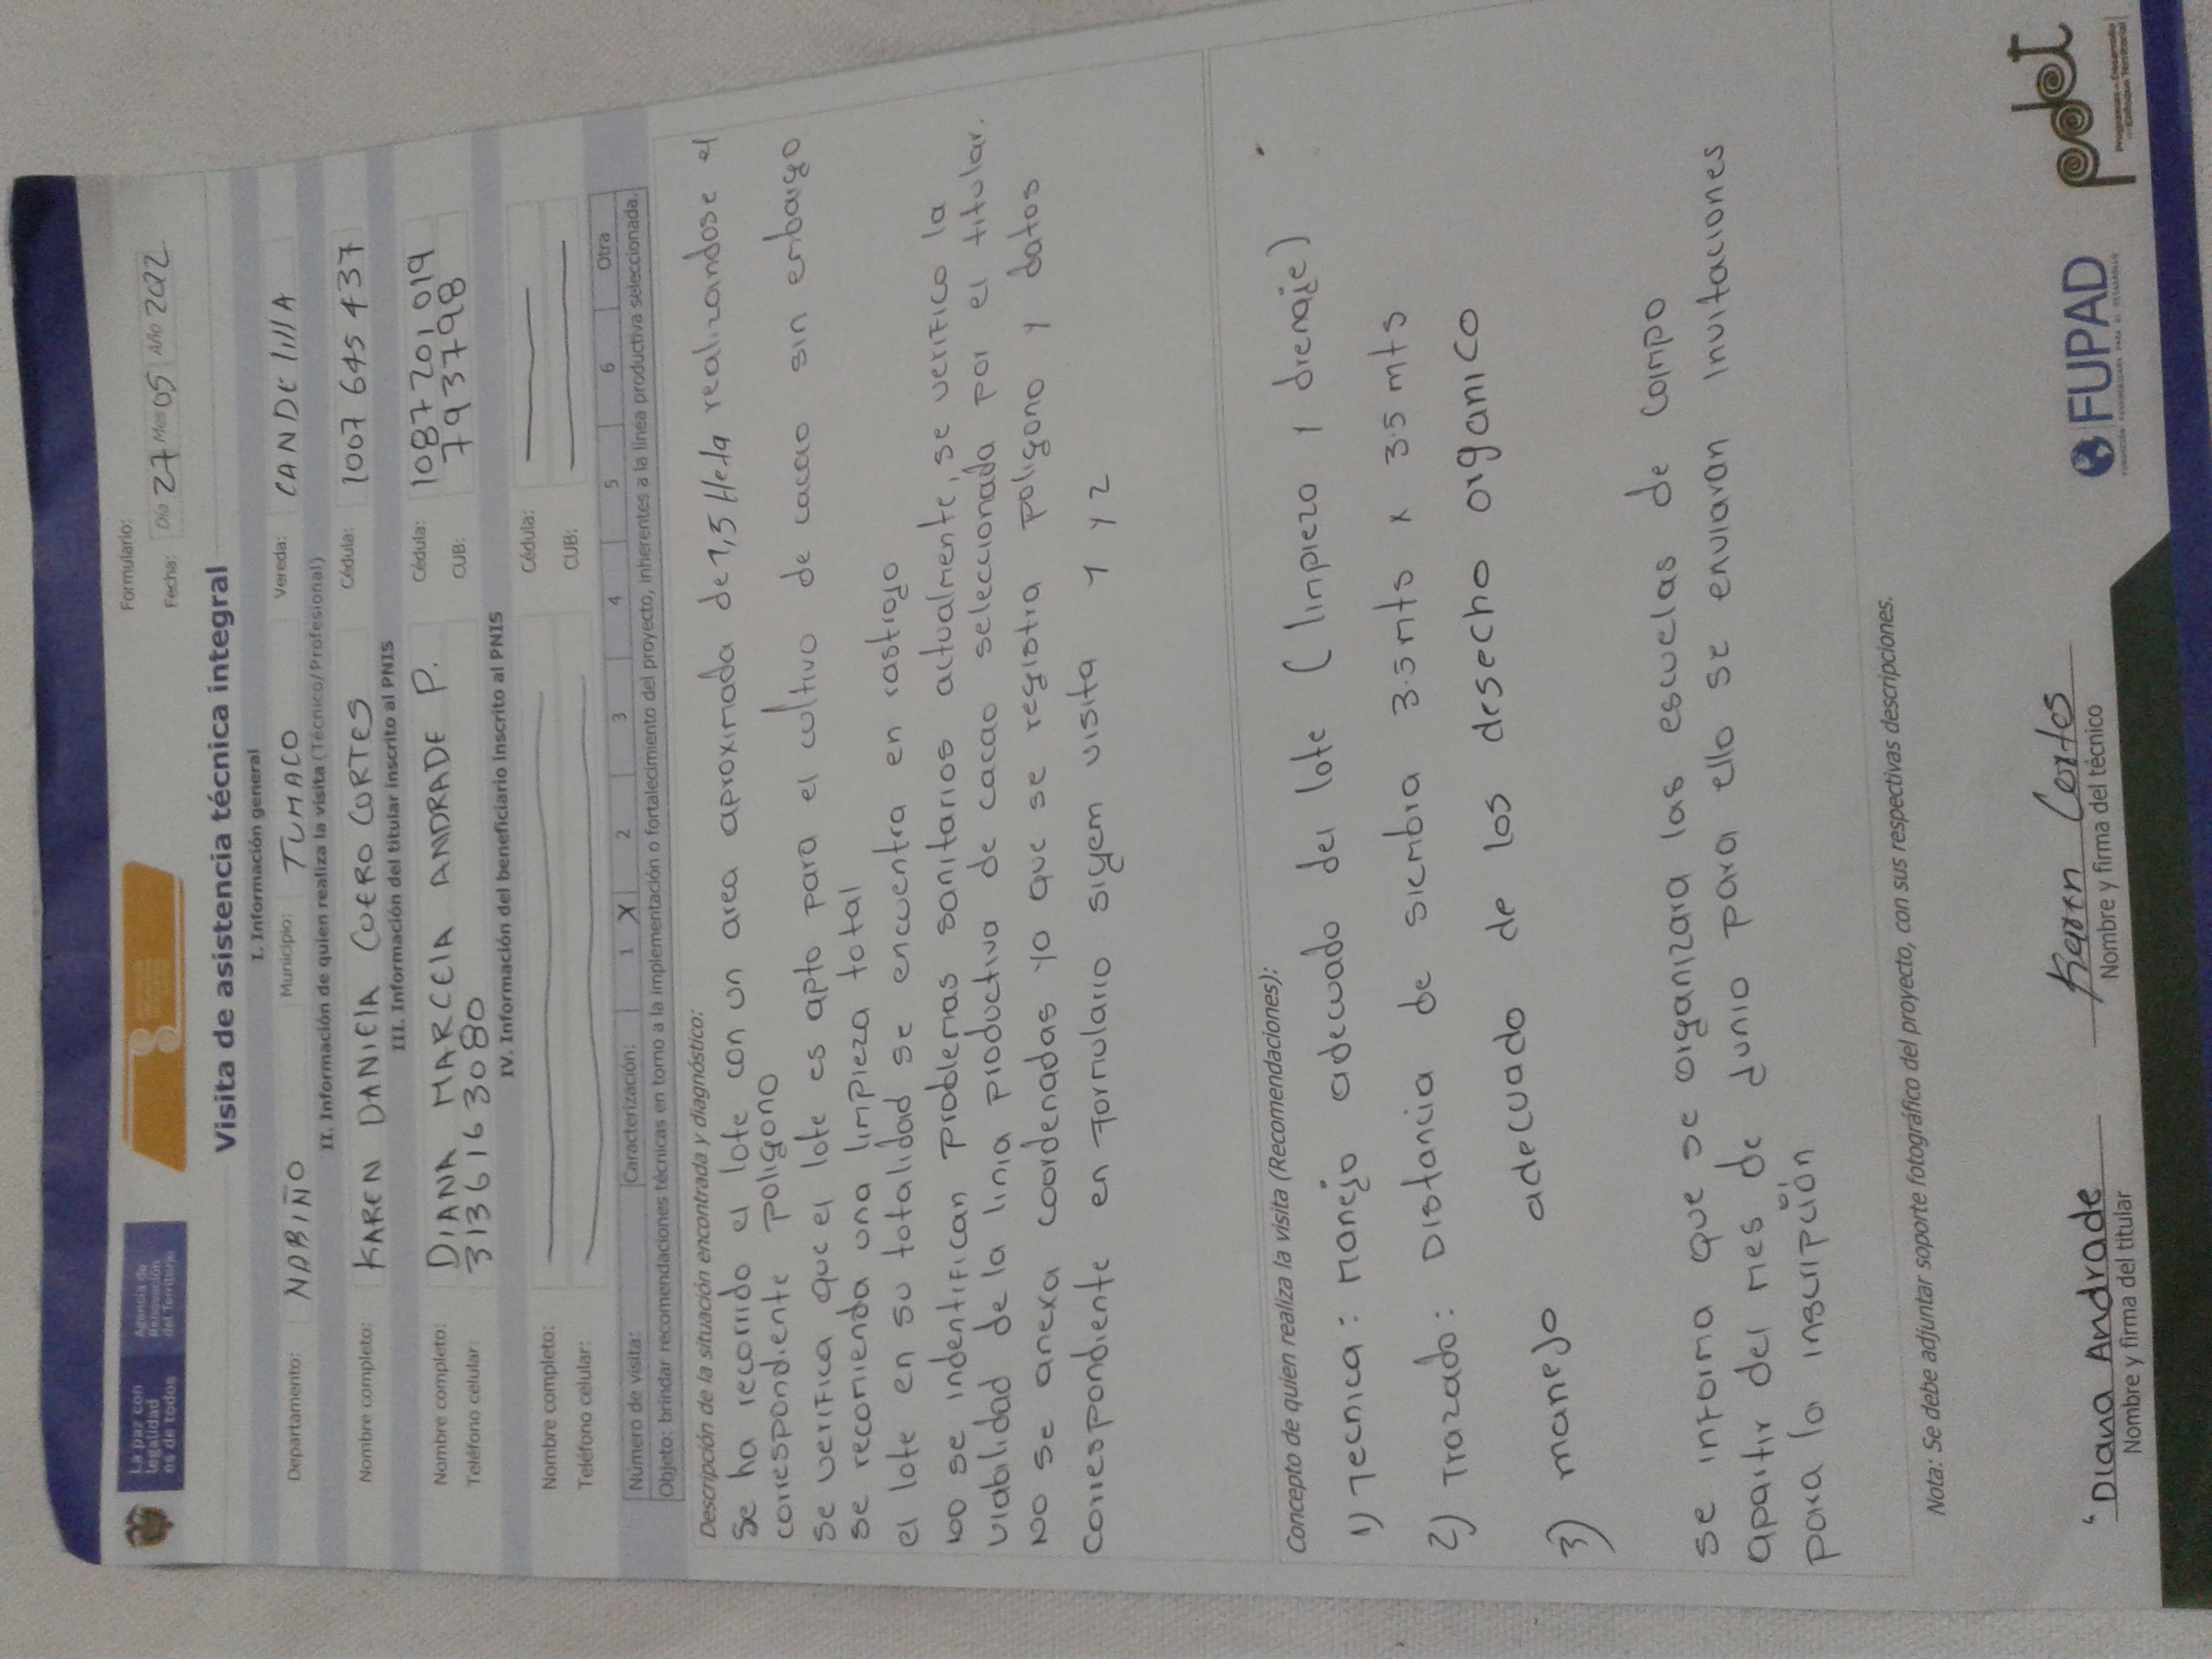 La paz con
legalidad
es de todos
Agencia de
Renovación
del Territorio
Formulario:
Fecha: Día 27 Mes 05 Año 2022
Visita de asistencia técnica integral
I. Información general
Departamento: NARIÑO Municipio: TUMACO Vereda: CANDelillA
II. Información de quien realiza la visita (Técnico/Profesional)
Nombre completo: KAREN DANIElA CUERO CORTES Cédula: 1007 645 437
III. Información del titular inscrito al PNIS
Nombre completo: DIANA MARCElA ANDRADE P. Cédula: 1087 201 019
Teléfono celular: 313 616 3080 CUB: 7937798
IV. Información del beneficiario inscrito al PNIS
Nombre completo: Cédula:
Teléfono celular: CUB:
Número de visita: Caracterización: 1 X 2 3 4 5 6 Otra
Objeto: brindar recomendaciones técnicas en torno a la implementación o fortalecimiento del proyecto, inherentes a la línea productiva seleccionada.
Descripción de la situación encontrada y diagnóstico:
Se ha recorrido el lote con un area aproximada de 1,5 Heta realizandose el
correspondiente poligono
se verifica que el lote es apto para el cultivo de cacao sin embargo
se recomienda una limpieza total
el lote en su totalidad se encuentra en rastrojo
no se indentifican problemas sanitarios actualmente, se verifico la
viabilidad de la linia productiva de cacao seleccionada por el titular.
NO se anexa coordenadas ya que se registra poligono y datos
correspondiente en formulario sigem visita 1 y 2
Concepto de quien realiza la visita (Recomendaciones):
1) Tecnica: manejo adecuado del lote (limpieza y drenaje)
2) Trazado: Distancia de siembra 3.5 mts x 3.5 mts
3) manejo adecuado de los desecho organico
se informa que se organizara las escuelas de campo
apartir del mes de Junio para ello se enviaran invitaciones
para la inscripción
Nota: Se debe adjuntar soporte fotográfico del proyecto, con sus respectivas descripciones.
Diana Andrade
Nombre y firma del titular
Karen Cortes
Nombre y firma del técnico
FUPAD
FUNDACIÓN PANAMERICANA PARA EL DESARROLLO
pdet
Programas de Desarrollo
con Enfoque Territorial